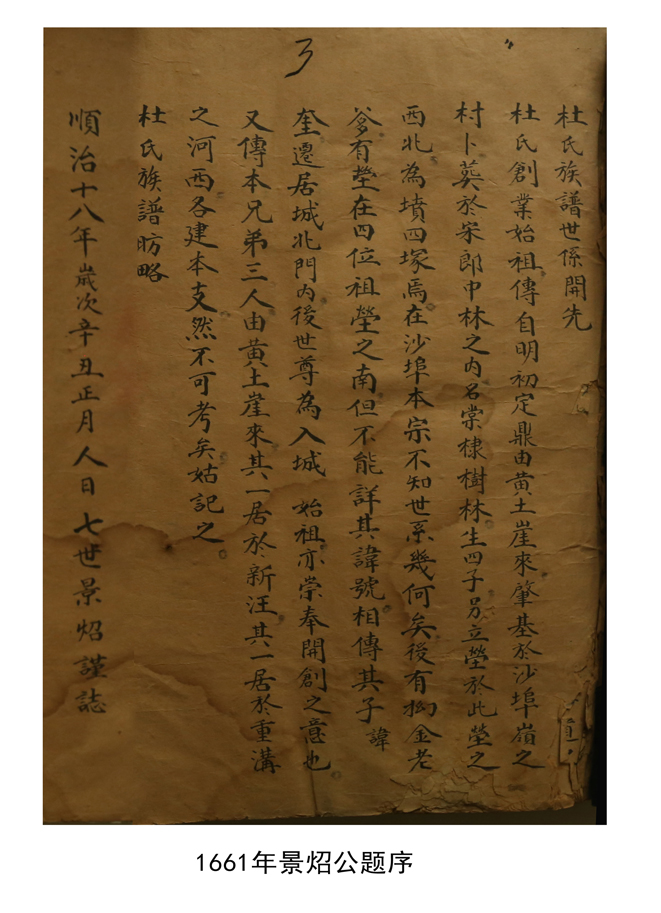 杜氏族譜世係開先
杜氏創業始祖傳自明初定鼎由黄土崖來肇基於沙埠嶺之
村卜葬於宋郎中林之内名棠棣樹林生四子另立塋於此塋之
西北為墳四塚焉在沙埠本宗不知世系幾何矣後有拗金老
爹有塋在四位祖塋之南但不能詳其諱號相傳其子諱
奎遷居城北門内後世尊為入城 始祖亦崇奉開創之意也
又傳本兄弟三人由黄土崖來其一居於新汪其一居於重溝
之河西各建本支然不可考矣姑記之
杜氏族譜昉略
順治十八年歲次辛丑正月人日七世景炤謹誌
3
1661年景炤公题序